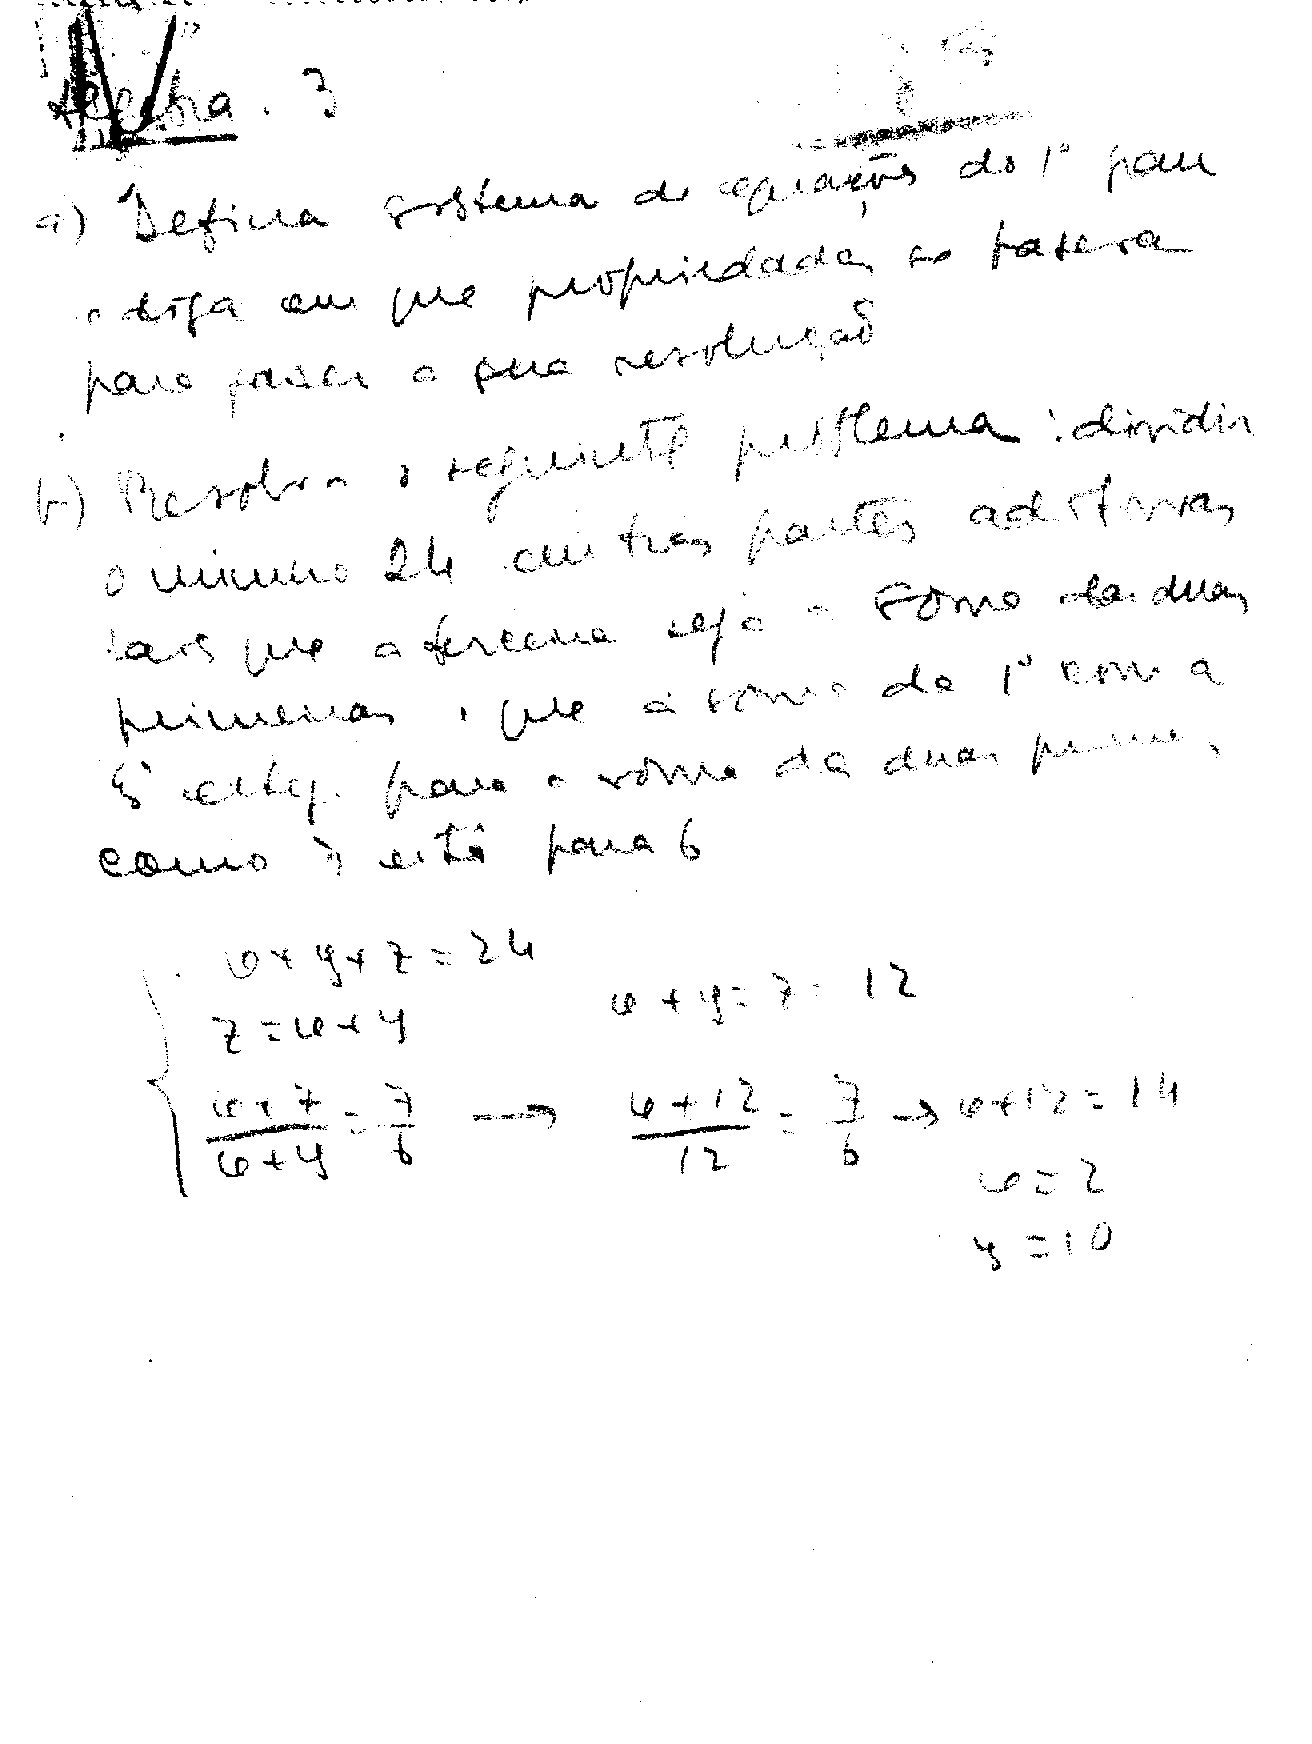 Algebra. 3
a) Defina sistema de equações do 1º grau
e diga em que propriedades se baseia
para fazer a sua resolução
b) Resolva o seguinte problema: dividir
o número 24 em tres partes aditivas
tais que a terceira seja a soma das duas
primeiras e que a soma da 1ª com a
3ª esteja para a soma das duas prime.
como 7 está para 6
x+y+z=24
z=x+y x+y=z=12
x+z/x+y=7/6 → x+12/12=7/6 → x+12=14
x=2
y=10